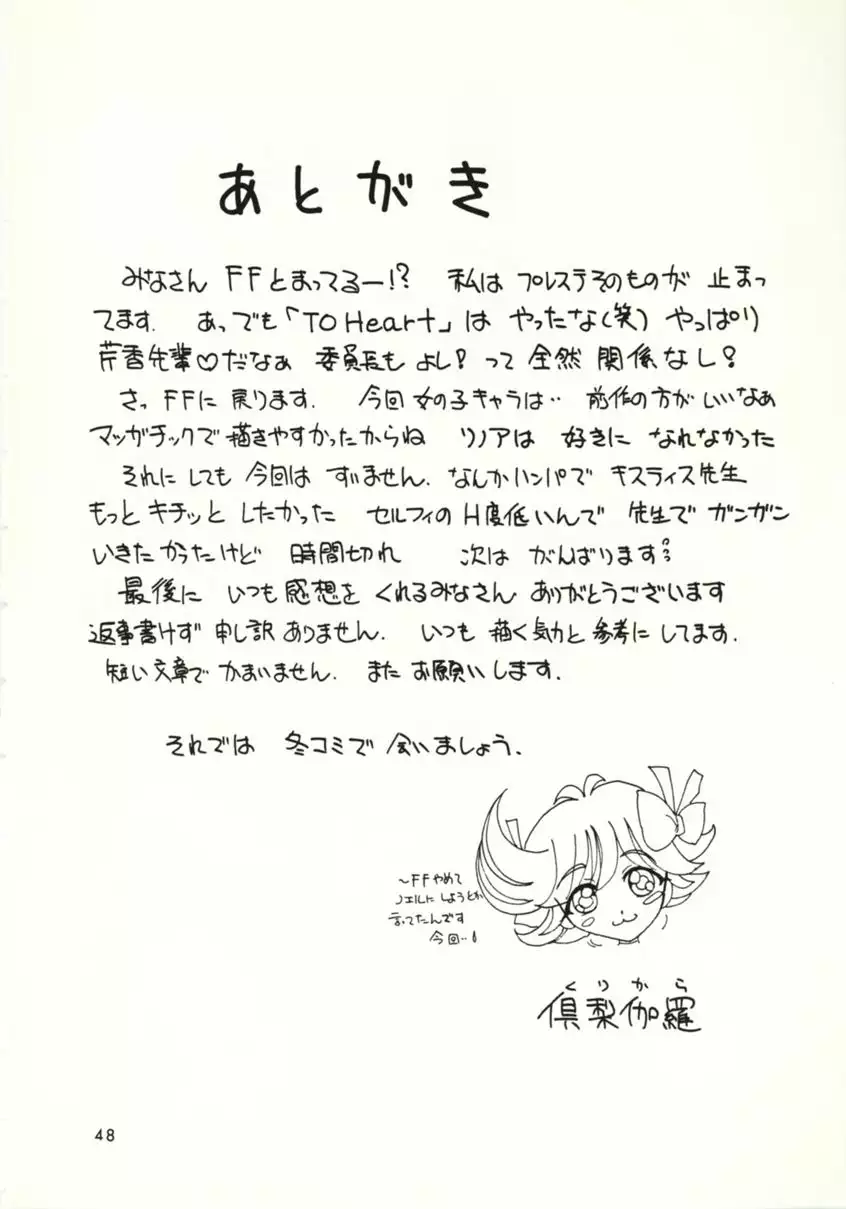 あとがき
みなさん FFとまってるー!? 私は プレステそのものが 止まっ
てます. あっでも「TO Heart」は やったな(笑) やっぱり
芹香先輩♡だなぁ 委員長も よし! って 全然 関係なし!
さっ FFに 戻ります. 今回 女の子キャラは‥ 前作の方が いいなぁ
マッガチックで 描きやすかったからね リノアは 好きに なれなかった
それにしても 今回は ずいません. なんかハンパで キスティス先生
もっと キチッと したかった セルフィの H度低いんで 先生で ガンガン
いきたかったけど 時間切れ 次は がんばります
最後に いつも 感想を くれるみなさん ありがとうございます
返事書けず 申し訳ありません. いつも 描く気力と 参考に してます.
短い文章で かまいません. また お願いします.
それでは 冬コミで 会いましょう.
〜FFやめて
ノエルに しようとか
言ってたんです
今回‥
くりから
倶梨伽羅
48